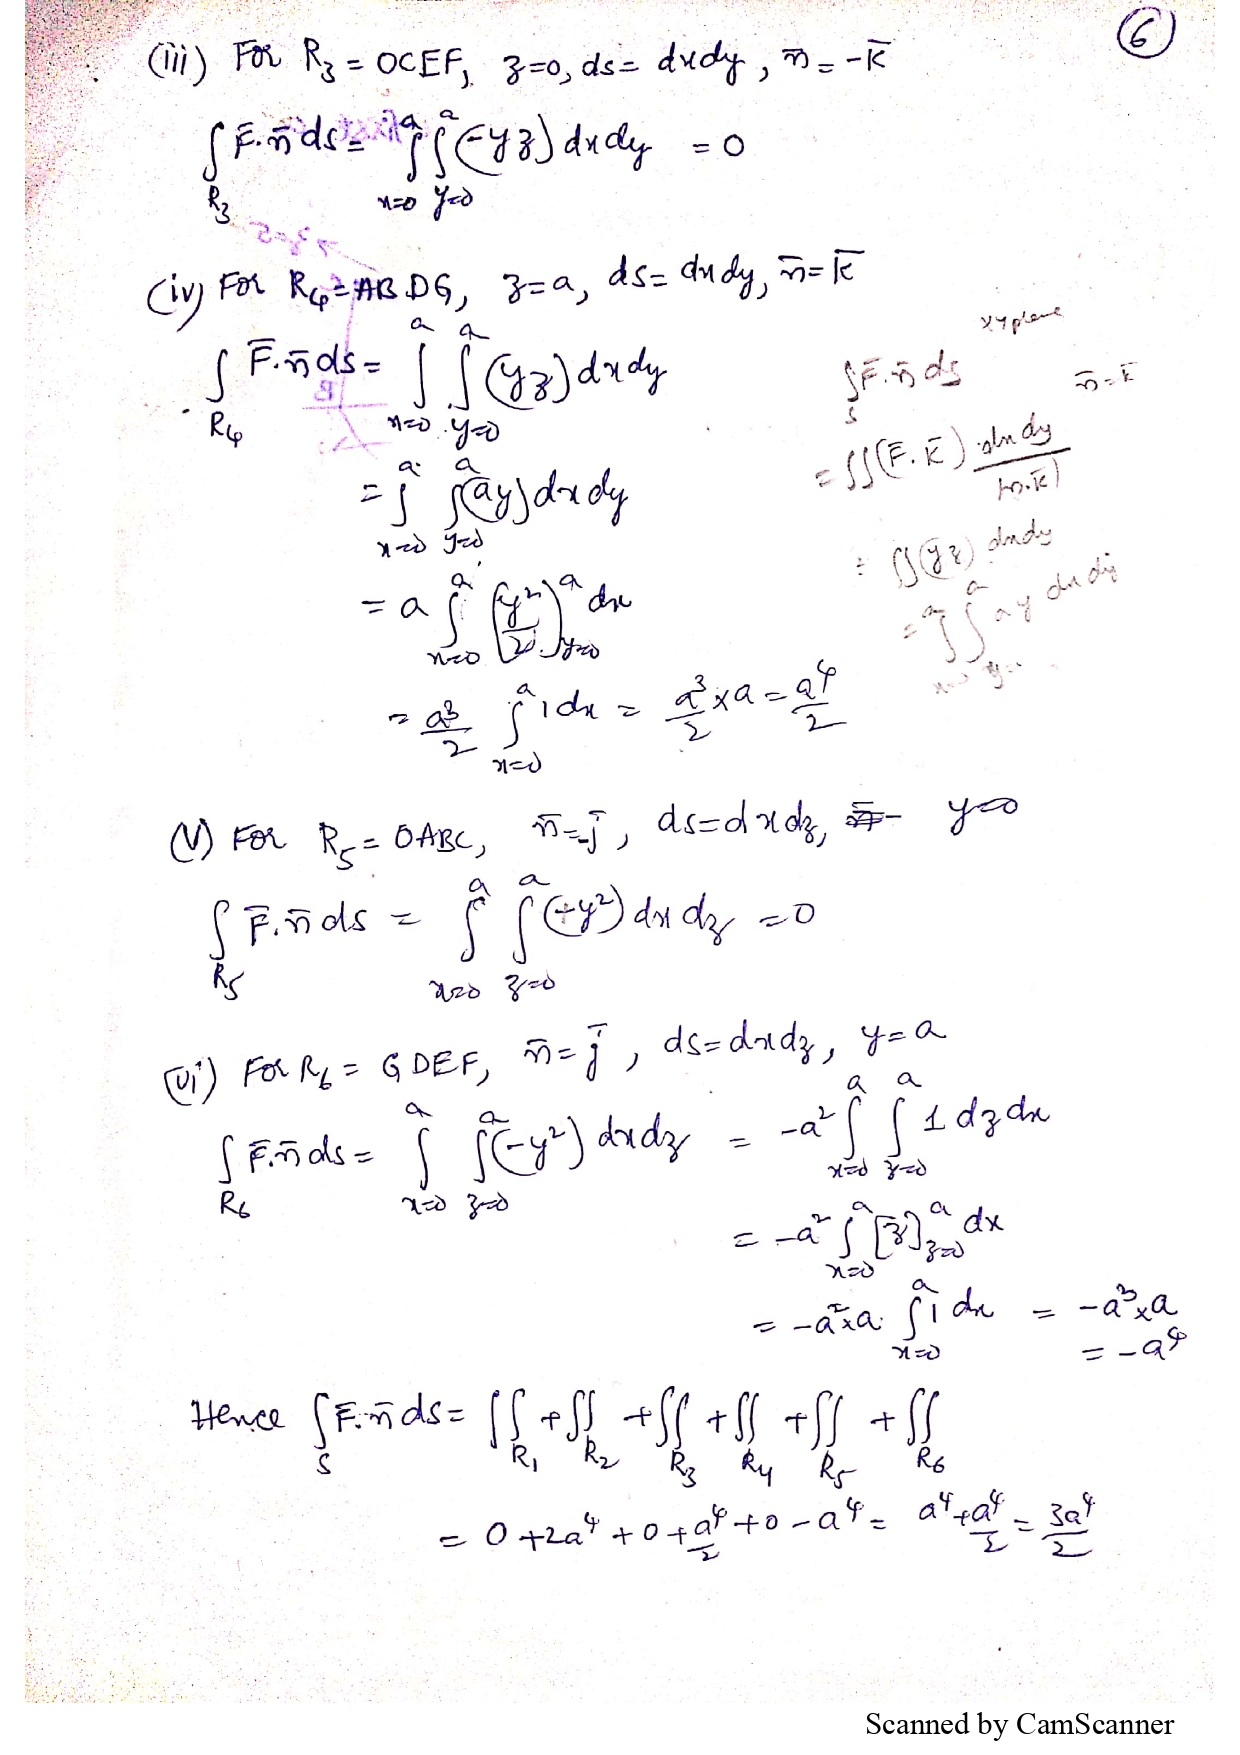 6
(iii) For R₃ = OCEF, z=0, ds = dxdy, n̄ = -k̄
∫_{R₃} F̄.n̄ ds = ∫_{x=0}^{a} ∫_{y=0}^{a} (-yz) dxdy = 0
(iv) For R₄ = ABDG, z=a, ds = dxdy, n̄ = k̄
∫_{R₄} F̄.n̄ ds = ∫_{x=0}^{a} ∫_{y=0}^{a} (yz) dxdy
= ∫_{x=0}^{a} ∫_{y=0}^{a} (ay) dxdy
= a ∫_{x=0}^{a} (y²/2)_{y=0}^{a} dx
= a³/2 ∫_{x=0}^{a} 1 dx = a³/2 × a = a⁴/2
xy plane
∫_S F̄.n̄ ds n̄ = k̄
= ∫∫ (F̄.k̄) dxdy/|n.k̄|
= ∫∫ (yz) dxdy
= ∫^{a} ∫^{a} ay dxdy
(v) For R₅ = OABC, n̄ = -j̄, ds = dxdz, y=0
∫_{R₅} F̄.n̄ ds = ∫_{x=0}^{a} ∫_{z=0}^{a} (+y²) dxdz = 0
(vi) For R₆ = GDEF, n̄ = j̄, ds = dxdz, y=a
∫_{R₆} F̄.n̄ ds = ∫_{x=0}^{a} ∫_{z=0}^{a} (-y²) dxdz = -a² ∫_{x=0}^{a} ∫_{z=0}^{a} 1 dzdx
= -a² ∫_{x=0}^{a} [z]_{z=0}^{a} dx
= -a² × a ∫_{x=0}^{a} 1 dx = -a³ × a
= -a⁴
Hence ∫_S F̄.n̄ ds = ∫∫_{R₁} + ∫∫_{R₂} + ∫∫_{R₃} + ∫∫_{R₄} + ∫∫_{R₅} + ∫∫_{R₆}
= 0 + 2a⁴ + 0 + a⁴/2 + 0 - a⁴ = a⁴ + a⁴/2 = 3a⁴/2
Scanned by CamScanner